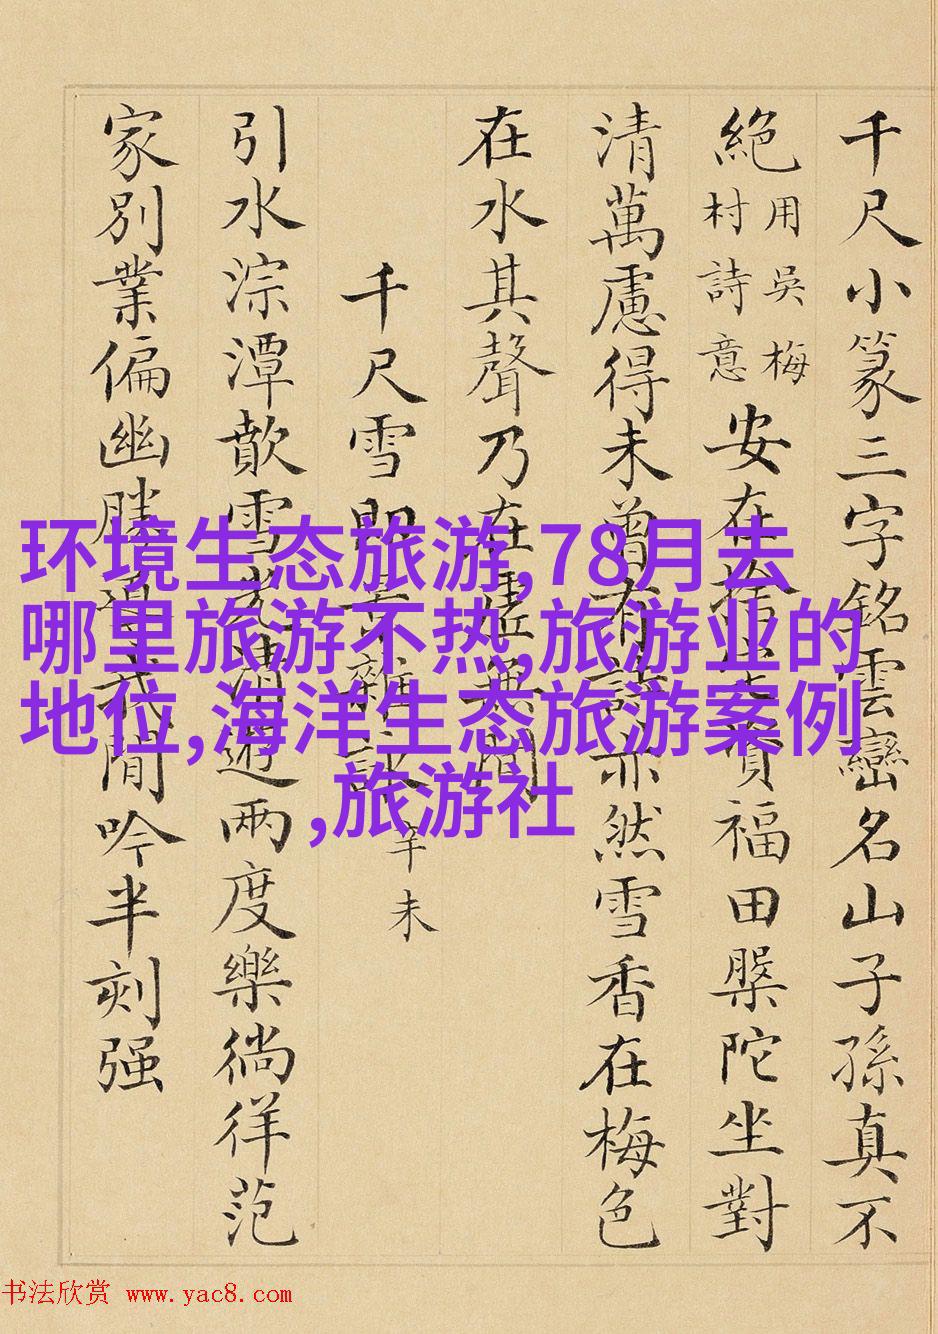 千尺小篆三字銘雲巒名山子孫真不
絕用吳梅村詩意安在福田槃陀坐對
清萬慮得未曾有詩亦然雪香在梅色
在水其聲乃在無間
千尺雪即景雜詠辛未
引水淙潭歕雪遊兩度樂徜徉范
家別業偏幽勝我閒吟半刻强
环境生态旅游,78月去
哪里旅游不热,旅游业的
地位,海洋生态旅游案例
,旅游社
书法欣赏 www.yac8.com